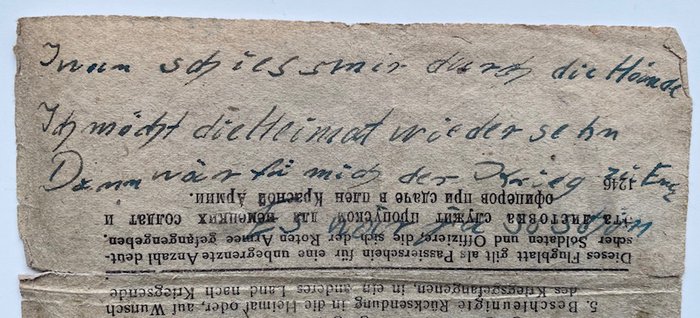 Iwan schiess mir durch die Hände
Ich möcht die Heimat wieder sehn
Dann wär fü mich der Krieg zu End
Es wär ja so schön
5. Beschleunigte Rücksendung in die Heimat oder, auf Wunsch
des Kriegsgefangenen, in ein anderes Land nach Kriegsende
Dieses Flugblatt gilt als Passierschein für eine unbegrenzte Anzahl deut-
scher Soldaten und Offiziere, die sich der Roten Armee gefangengeben.
Эта листовка служит пропуском для немецких солдат и
офицеров при сдаче в плен Красной Армии.